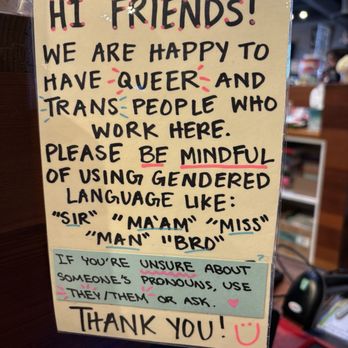 HI FRIENDS!
WE ARE HAPPY TO
HAVE QUEER AND
TRANS PEOPLE WHO
WORK HERE.
PLEASE BE MINDFUL
OF USING GENDERED
LANGUAGE LIKE:
"SIR" "MA'AM" "MISS"
"MAN" "BRO"
IF YOU'RE UNSURE ABOUT
SOMEONE'S PRONOUNS, USE
THEY/THEM OR ASK.
THANK YOU!